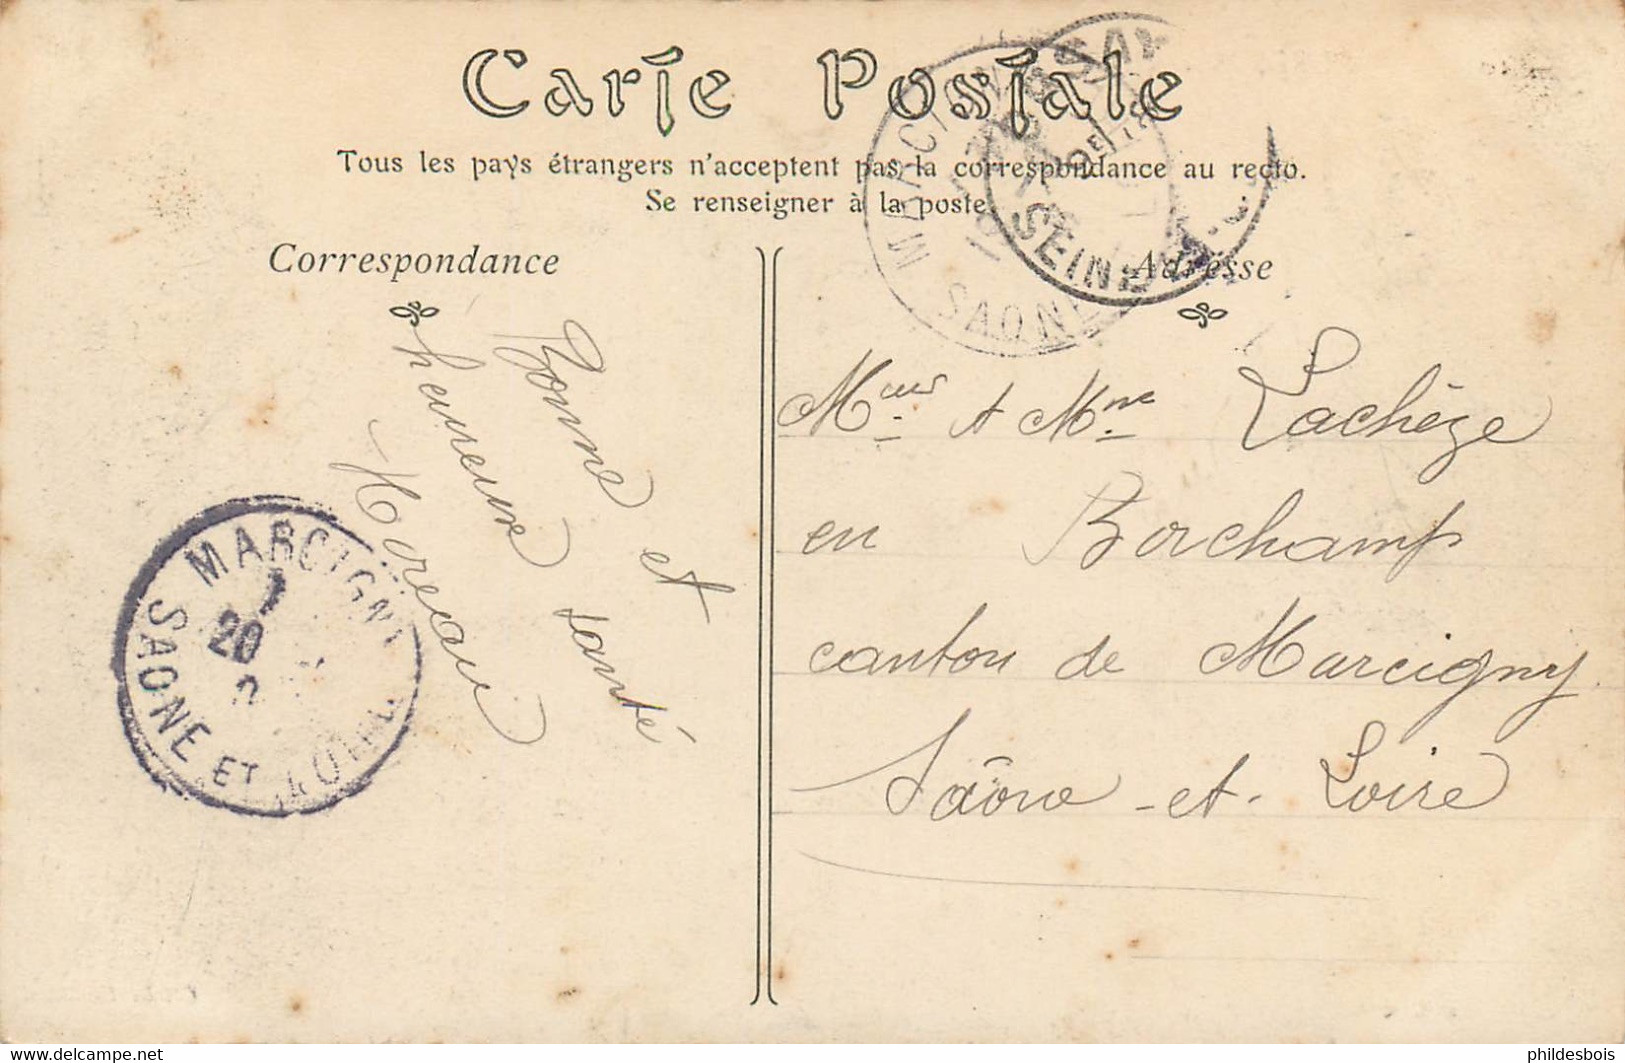 Carte Postale
Tous les pays étrangers n'acceptent pas la correspondance au recto.
Se renseigner à la poste.
Correspondance
Adresse
Bonne et
heureuse santé
Moreau
Mr et Mme Lachèze
en Borchamp
canton de Marcigny
Saône-et-Loire
MARCIGNY
20
SAONE ET LOIRE
MARCIGNY
SAONE
SEINE
phildesbois